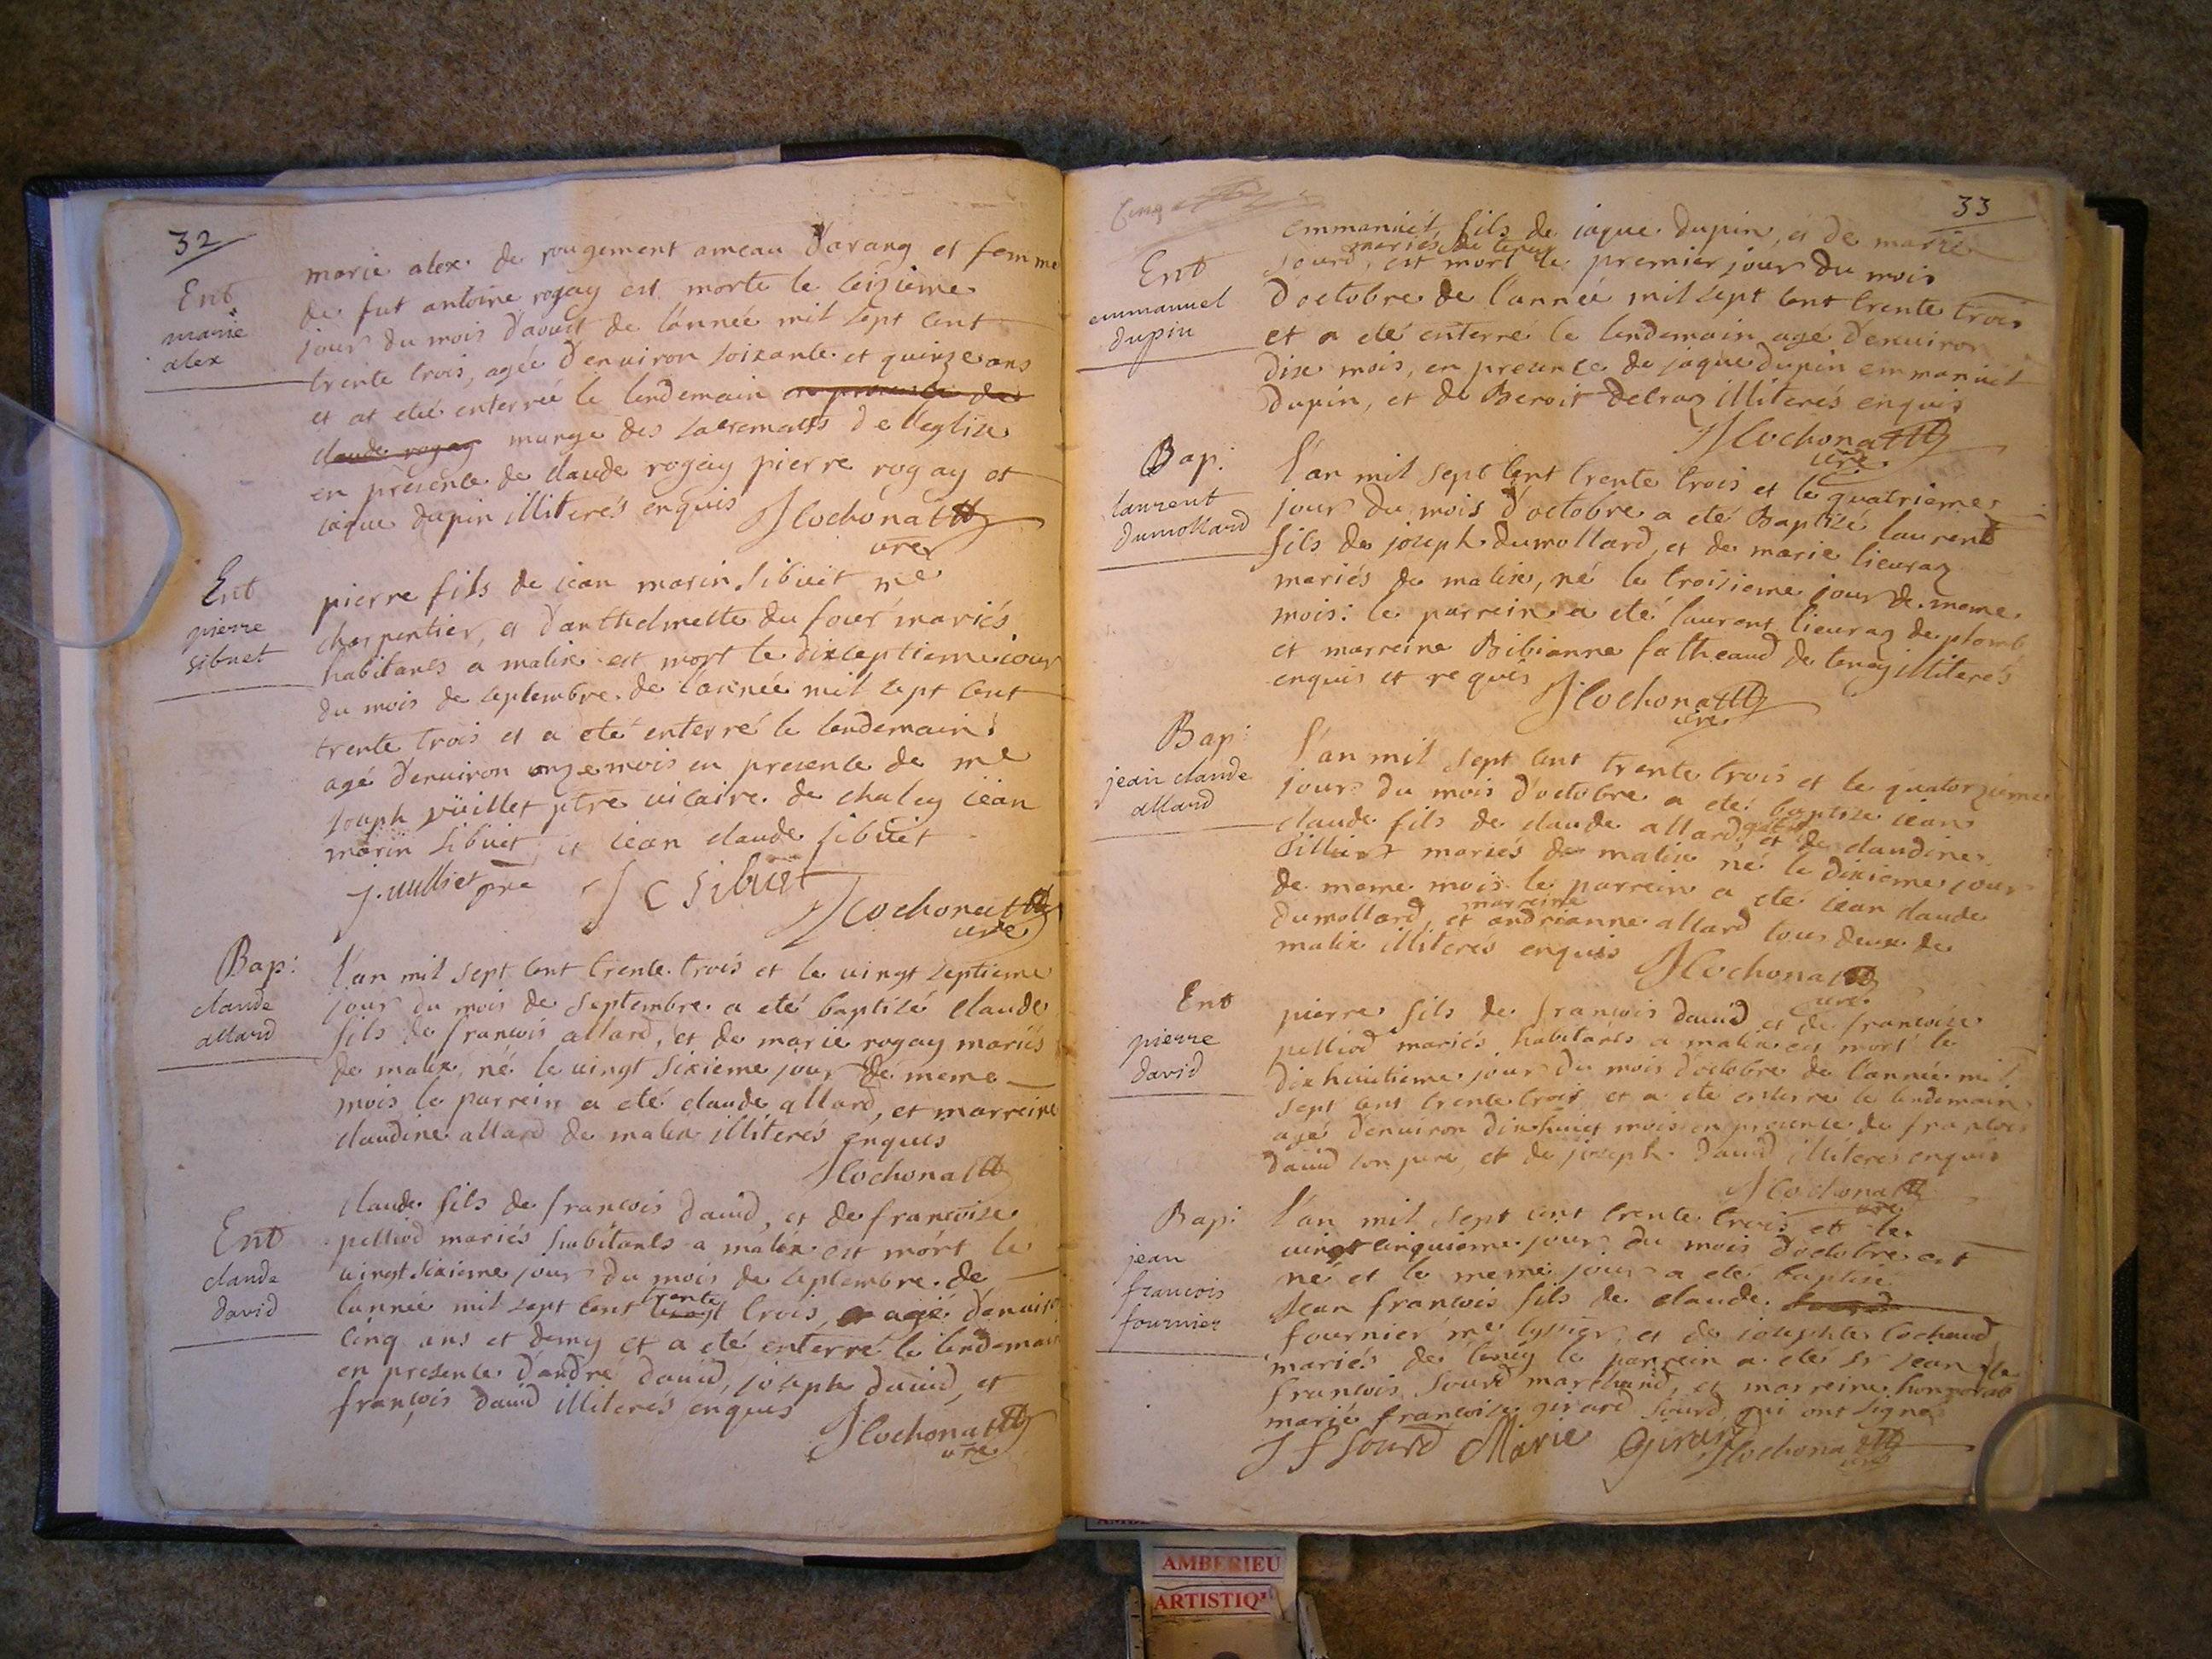 32
Ent
marie
alex
marie alex de rougement ameau d'arang et femme
de fut antoine rogay est morte le seizieme
jour du mois d'aoust de l'année mil sept cent
trente trois, agée d'enuiron soixante et quinze ans
et at eté enterrée le lendemain en presence de
claude rogay munye des sacremants de l'eglise
en presence de claude rogay pierre rogay et
iaque dupin illiterés enquis Jlochonatt
cure
Ent
pierre
sibuet
pierre fils de iean marin sibuet me
charpentier, et d'anthelmette du four mariés
habitants a malix est mort le dixseptieme iour
du mois de septembre de l'année mil sept cent
trente trois et a eté enterré le lendemain
agé d'enuiron onze mois en presence de me
joseph vüillet ptre uicaire de chaley iean
marin sibuet, et iean claude sibuet
j. uulliet pre J C Sibuet
Jlochonatt
cure
Bap:
claude
allard
l'an mil sept cent trente trois et le uingt septieme
jour du mois de septembre a eté baptisé claude
fils de francois allard, et de marie rogay mariés
de malix, né le uingt sixieme jour de meme
mois le parrein a eté claude allard, et marreine
claudine allard de malix illiterés enquis
Jlochonatt
Ent
claude
david
claude fils de francois dauid, et de francoise
pelliod mariés habitants a malix est mort le
uingt sixieme jour du mois de septembre de
l'année mil sept cent trente trois, agé d'enuiron
cinq ans et demy et a eté enterré le lendemain
en presence d'andré dauid, joseph dauid, et
françois dauid illiterés enquis
Jlochonatt
cure
33
Ent
emmanuel
dupin
emmanuel fils de iaque dupin, et de marie
mariés de tenay
sourd, est mort le premier jour du mois
d'octobre de l'année mil sept cent trente trois
et a eté enterré le lendemain agé d'enuiron
dix mois, en presence de jaque dupin emmanuel
dupin, et de Benoit Debraz illiterés enquis
Jlochonatt
cure
Bap:
laurent
dumollard
l'an mil sept cent trente trois et le quatrieme
jour du mois d'octobre a eté Baptisé laurent
fils de joseph dumollard, et de marie lieuraz
mariés de malix, né le troisieme jour de meme
mois: le parrein a eté laurent lieuraz de plomb
et marreine Bibianne fatheaud de tenay illiterés
enquis et requis Jlochonatt
cure
Bap:
jean claude
allard
l'an mil sept cent trente trois et le quatorzieme
jour du mois d'octobre a eté baptisé iean
claude fils de claude allard et de claudine
mariés de malix né le dixieme jour
de meme mois le parrein a eté iean claude
marreine
dumollard, et andrianne allard tous deux de
malix illiteres enquis Jlochonatt
cure
Ent
pierre
david
pierre fils de francois dauid et de francoise
pelliod mariés habitants a malix est mort le
dixhuitieme jour du mois d'octobre de l'année mil
sept cent trente trois et a eté enterré le lendemain
agé d'enuiron dixhuit mois en presence de francois
dauid son pere, et de joseph dauid illiteres enquis
Jlochonatt
cure
Bap:
jean
francois
fournier
l'an mil sept cent trente trois et le
uingt cinquieme jour du mois d'octobre est
né et le meme jour a eté baptisé
Jean francois fils de claude
fournier me tyssier, et de iosephte Cochaud
mariés de tenay le parrein a eté sr jean
francois sourd marchand, et marreine honorable
marie francoise girard sourd qui ont signé
J f Sourd Marie Girard Jlochonatt
cure
AMBERIEU
ARTISTIQ